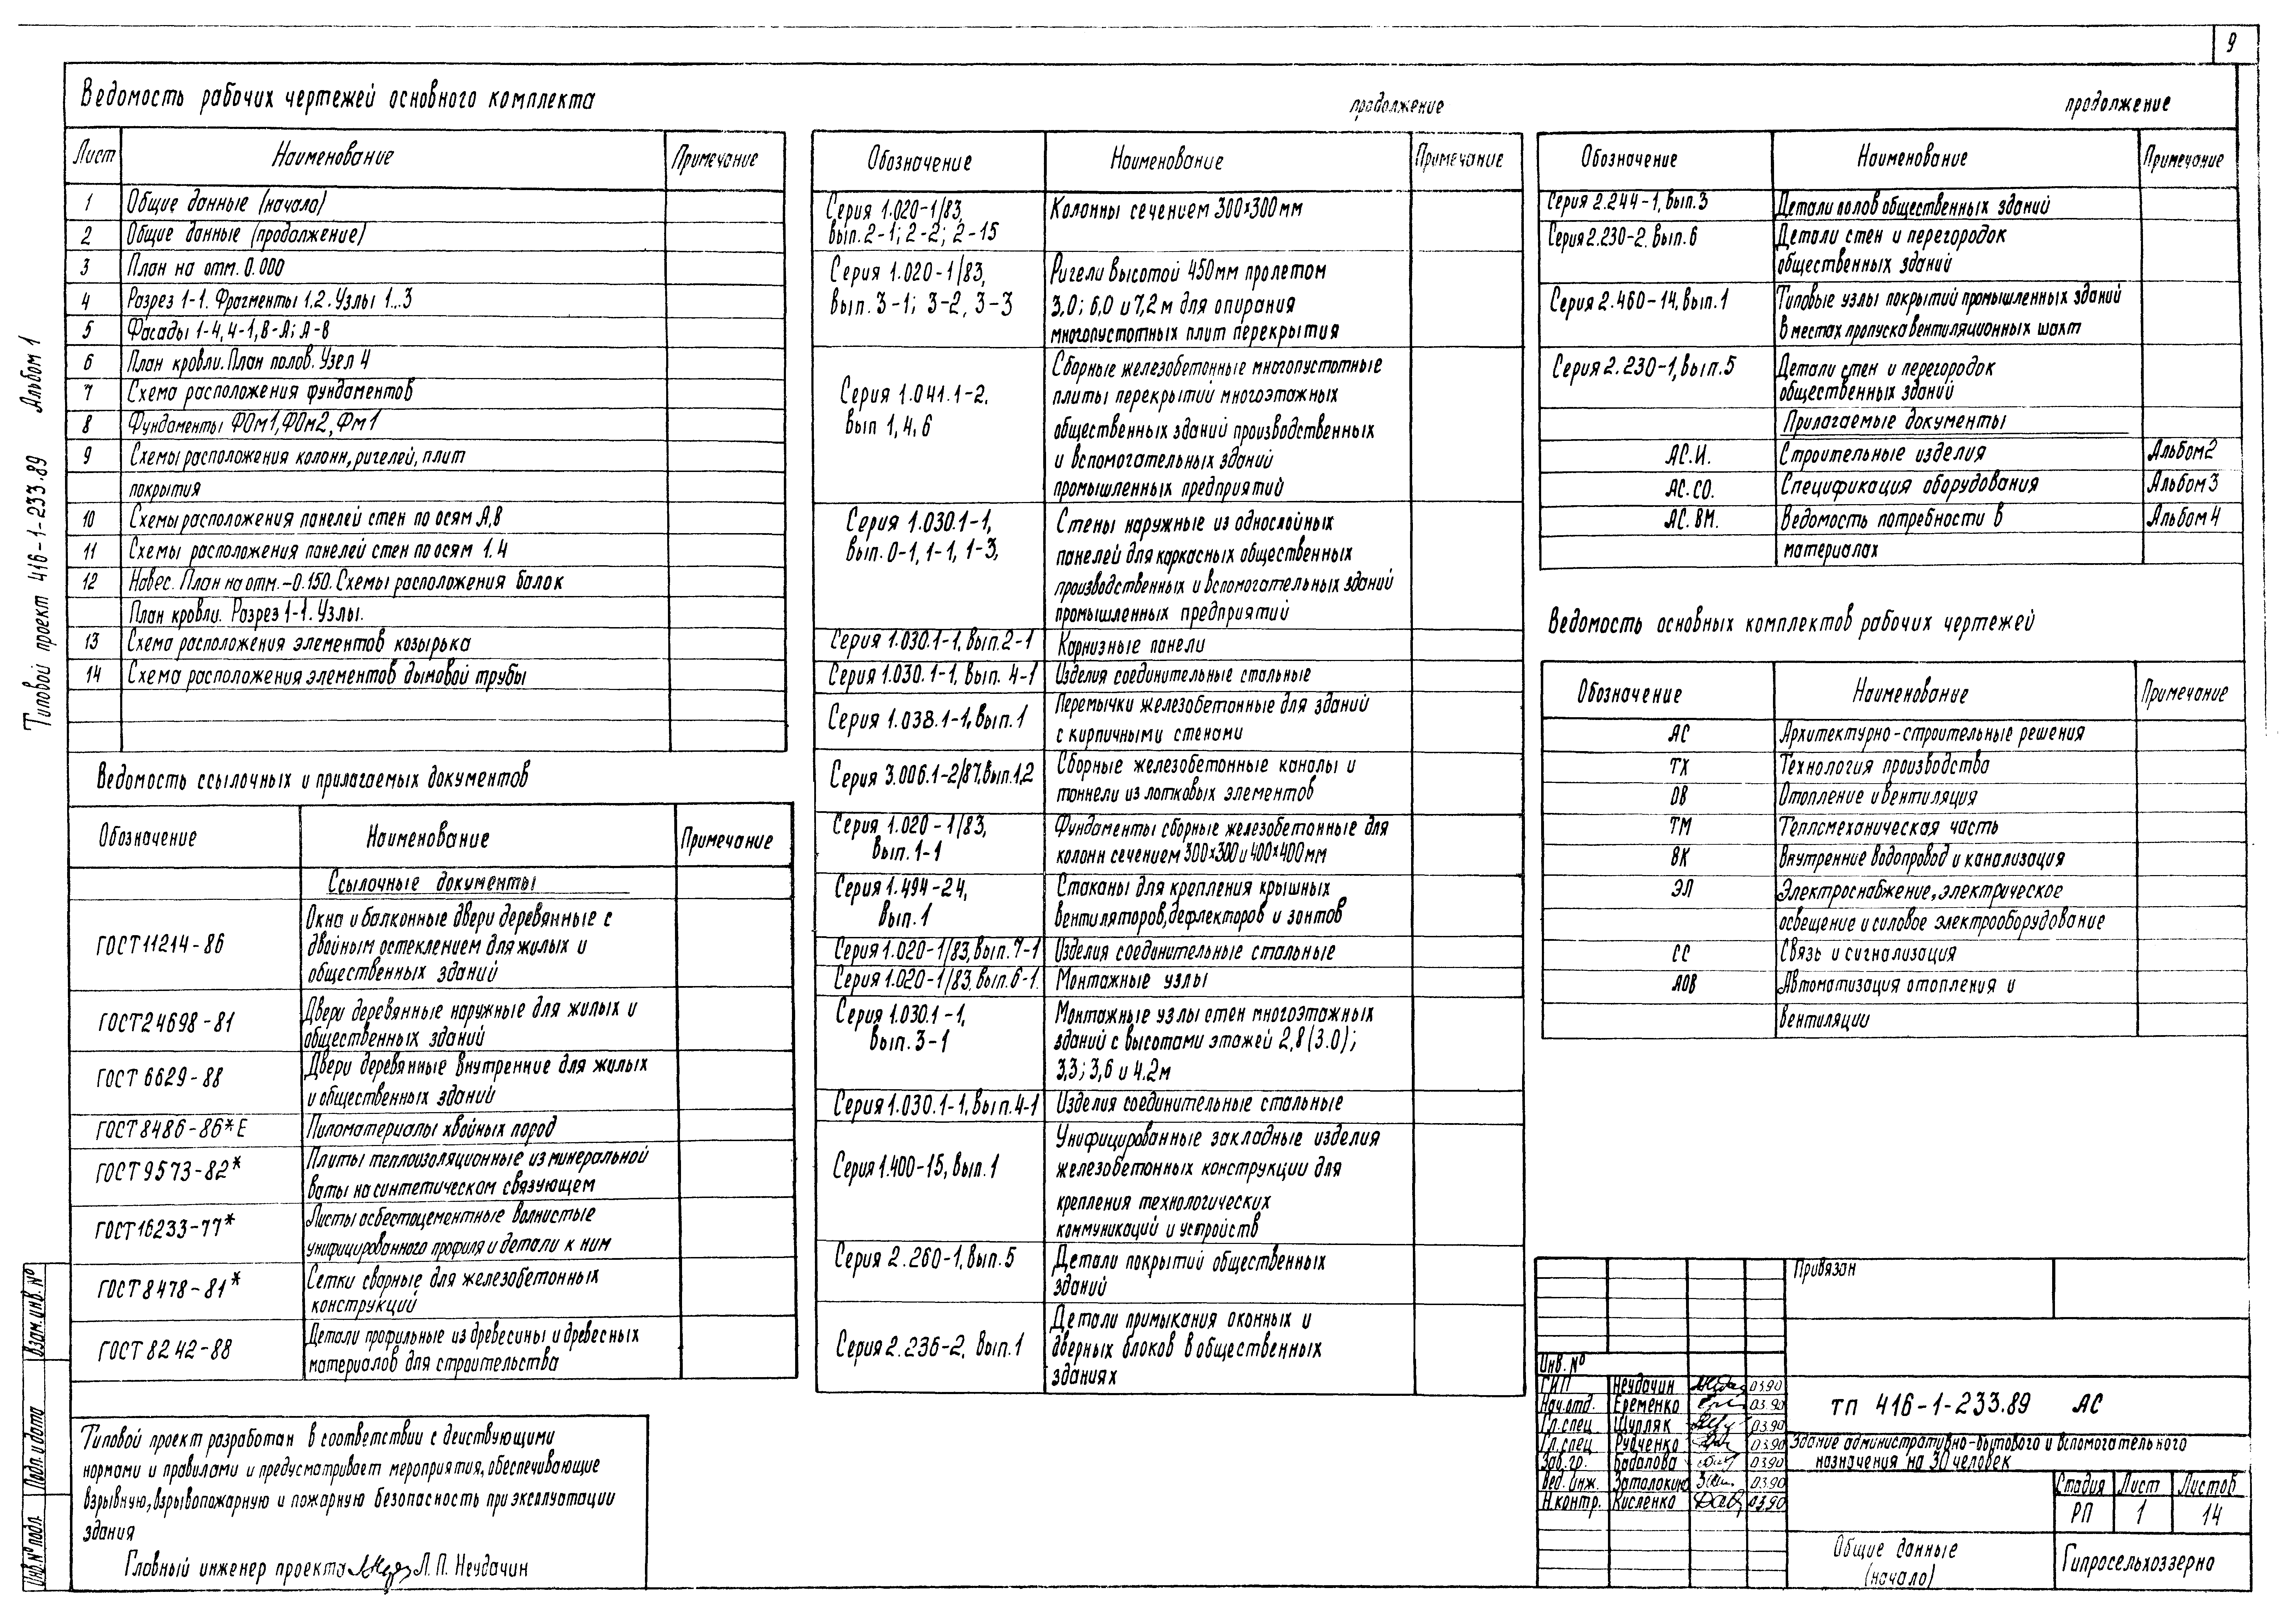 9
Ведомость рабочих чертежей основного комплекта
Лист Наименование Примечание
1 Общие данные (начало)
2 Общие данные (продолжение)
3 План на отм. 0.000
4 Разрез 1-1. Фрагменты 1,2. Узлы 1...3
5 Фасады 1-4, 4-1, В-А; А-В
6 План кровли. План полов. Узел 4
7 Схема расположения фундаментов
8 Фундаменты ФОм1, ФОм2, Фм1
9 Схемы расположения колонн, ригелей, плит
покрытия
10 Схемы расположения панелей стен по осям А,В
11 Схемы расположения панелей стен по осям 1.4
12 Навес. План на отм. -0.150. Схемы расположения балок
План кровли. Разрез 1-1. Узлы.
13 Схема расположения элементов козырька
14 Схема расположения элементов дымовой трубы
Ведомость ссылочных и прилагаемых документов
Обозначение Наименование Примечание
Ссылочные документы
ГОСТ 11214-86 Окна и балконные двери деревянные с
двойным остеклением для жилых и
общественных зданий
ГОСТ 24698-81 Двери деревянные наружные для жилых и
общественных зданий
ГОСТ 6629-88 Двери деревянные внутренние для жилых
и общественных зданий
ГОСТ 8486-86*Е Пиломатериалы хвойных пород
ГОСТ 9573-82* Плиты теплоизоляционные из минеральной
ваты на синтетическом связующем
ГОСТ 16233-77* Листы асбестоцементные волнистые
унифицированного профиля и детали к ним
ГОСТ 8478-81* Сетки сварные для железобетонных
конструкций
ГОСТ 8242-88 Детали профильные из древесины и древесных
материалов для строительства
Типовой проект разработан в соответствии с действующими
нормами и правилами и предусматривает мероприятия, обеспечивающие
взрывную, взрывопожарную и пожарную безопасность при эксплуатации
здания
Главный инженер проекта Л.П. Неудачин
продолжение
Обозначение Наименование Примечание
Серия 1.020-1/83, Колонны сечением 300×300 мм
вып. 2-1; 2-2; 2-15
Серия 1.020-1/83, Ригели высотой 450мм пролетом
вып. 3-1; 3-2, 3-3 3,0; 6,0 и 7,2 м для опирания
многопустотных плит перекрытия
Сборные железобетонные многопустотные
Серия 1.041.1-2, плиты перекрытий многоэтажных
вып 1,4,6 общественных зданий производственных
и вспомогательных зданий
промышленных предприятий
Серия 1.030.1-1, Стены наружные из однослойных
вып. 0-1, 1-1, 1-3, панелей для каркасных общественных
производственных и вспомогательных зданий
промышленных предприятий
Серия 1.030.1-1, вып.2-1 Карнизные панели
Серия 1.030.1-1, вып. 4-1 Изделия соединительные стальные
Серия 1.038.1-1, вып.1 Перемычки железобетонные для зданий
с кирпичными стенами
Серия 3.006.1-2/87, вып.1,2 Сборные железобетонные каналы и
тоннели из лотковых элементов
Серия 1.020-1/83, Фундаменты сборные железобетонные для
вып.1-1 колонн сечением 300×300 и 400×400мм
Серия 1.494-24, Стаканы для крепления крышных
вып.1 вентиляторов, дефлекторов и зонтов
Серия 1.020-1/83, вып.7-1 Изделия соединительные стальные
Серия 1.020-1/83, вып.6-1. Монтажные узлы
Серия 1.030.1-1, Монтажные узлы стен многоэтажных
вып. 3-1 зданий с высотами этажей 2,8(3.0);
3,3; 3,6 и 4.2м
Серия 1.030.1-1, вып.4-1 Изделия соединительные стальные
Унифицированные закладные изделия
Серия 1.400-15, вып.1 железобетонных конструкции для
крепления технологических
коммуникаций и устройств
Серия 2.260-1, вып.5 Детали покрытий общественных
зданий
Детали примыкания оконных и
Серия 2.236-2, вып.1 дверных блоков в общественных
зданиях
продолжение
Обозначение Наименование Примечание
Серия 2.244-1, вып.3 Детали полов общественных зданий
Серия 2.230-2. вып.6 Детали стен и перегородок
общественных зданий
Серия 2.460-14, вып.1 Типовые узлы покрытий промышленных зданий
в местах пропуска вентиляционных шахт
Серия 2.230-1, вып.5 Детали стен и перегородок
общественных зданий
Прилагаемые документы
АС.И. Строительные изделия Альбом2
АС.СО. Спецификация оборудования Альбом3
АС.ВМ. Ведомость потребности в Альбом4
материалах
Ведомость основных комплектов рабочих чертежей
Обозначение Наименование Примечание
АС Архитектурно-строительные решения
ТХ Технология производства
ОВ Отопление и вентиляция
ТМ Тепломеханическая часть
ВК Внутренние водопровод и канализация
ЭЛ Электроснабжение, электрическое
освещение и силовое электрооборудование
СС Связь и сигнализация
АОВ Автоматизация отопления и
вентиляции
Привязан
Инв. №
ГИП Неудачин 03.90
Нач.отд. Еременко 03.90
Гл.спец Щупляк 03.90
Гл.спец Рудченко 03.90
Зав.гр. Бадалова 03.90
Вед. инж. Затолокина 03.90
Н.контр. Кисленко 03.90
ТП 416-1-233.89 АС
Здание административно-бытового и вспомогательного
назначения на 30 человек
Стадия Лист Листов
РП 1 14
Общие данные
(начало)
Гипросельхоззерно
Типовой проект 416-1-233.89 Альбом 1
Взам. инв. №
Подп. и дата
Инв. № подл.